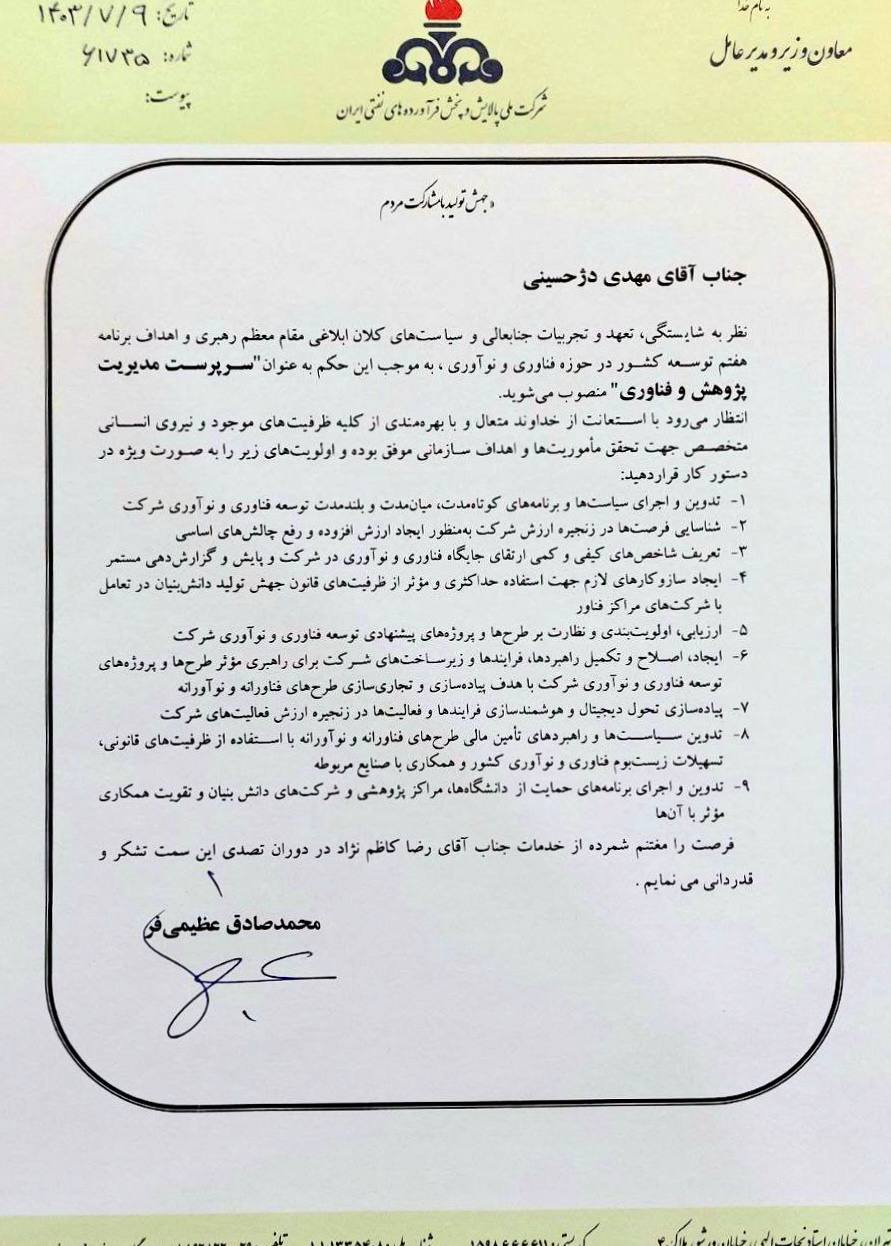 به نام خدا
معاون وزیر و مدیر عامل
تاریخ: ۱۴۰۳/۷/۹
شماره: ۶۱۷۳۵
پیوست:
شرکت ملی پالایش و پخش فرآورده های نفتی ایران
«جهش تولید با مشارکت مردم
جناب آقای مهدی دژحسینی
نظر به شایستگی، تعهد و تجربیات جنابعالی و سیاست‌های کلان ابلاغی مقام معظم رهبری و اهداف برنامه
هفتم توسعه کشور در حوزه فناوری و نوآوری ، به موجب این حکم به عنوان "سرپرست مدیریت
پژوهش و فناوری" منصوب می‌شوید.
انتظار می‌رود با استعانت از خداوند متعال و با بهره‌مندی از کلیه ظرفیت‌های موجود و نیروی انسانی
متخصص جهت تحقق مأموریت‌ها و اهداف سازمانی موفق بوده و اولویت‌های زیر را به صورت ویژه در
دستور کار قراردهید:
۱- تدوین و اجرای سیاست‌ها و برنامه‌های کوتاه‌مدت، میان‌مدت و بلندمدت توسعه فناوری و نوآوری شرکت
۲- شناسایی فرصت‌ها در زنجیره ارزش شرکت به‌منظور ایجاد ارزش افزوده و رفع چالش‌های اساسی
۳- تعریف شاخص‌های کیفی و کمی ارتقای جایگاه فناوری و نوآوری در شرکت و پایش و گزارش‌دهی مستمر
۴- ایجاد سازوکارهای لازم جهت استفاده حداکثری و مؤثر از ظرفیت‌های قانون جهش تولید دانش‌بنیان در تعامل
با شرکت‌های مراکز فناور
۵- ارزیابی، اولویت‌بندی و نظارت بر طرح‌ها و پروژه‌های پیشنهادی توسعه فناوری و نوآوری شرکت
۶- ایجاد، اصلاح و تکمیل راهبردها، فرایندها و زیرساخت‌های شرکت برای راهبری مؤثر طرح‌ها و پروژه‌های
توسعه فناوری و نوآوری شرکت با هدف پیاده‌سازی و تجاری‌سازی طرح‌های فناورانه و نوآورانه
۷- پیاده‌سازی تحول دیجیتال و هوشمندسازی فرایندها و فعالیت‌ها در زنجیره ارزش فعالیت‌های شرکت
۸- تدوین سیاست‌ها و راهبردهای تأمین مالی طرح‌های فناورانه و نوآورانه با استفاده از ظرفیت‌های قانونی،
تسهیلات زیست‌بوم فناوری و نوآوری کشور و همکاری با صنایع مربوطه
۹- تدوین و اجرای برنامه‌های حمایت از دانشگاه‌ها، مراکز پژوهشی و شرکت‌های دانش بنیان و تقویت همکاری
مؤثر با آن‌ها
فرصت را مغتنم شمرده از خدمات جناب آقای رضا کاظم نژاد در دوران تصدی این سمت تشکر و
قدردانی می نمایم .
محمدصادق عظیمی‌فر
تهران، خیابان استاد نجات الهی، خیابان ورشو، پلاک ۴